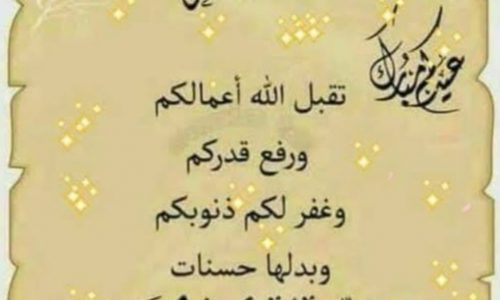 عيدكم مبارك
تقبل الله أعمالكم
ورفع قدركم
وغفر لكم ذنوبكم
وبدلها حسنات